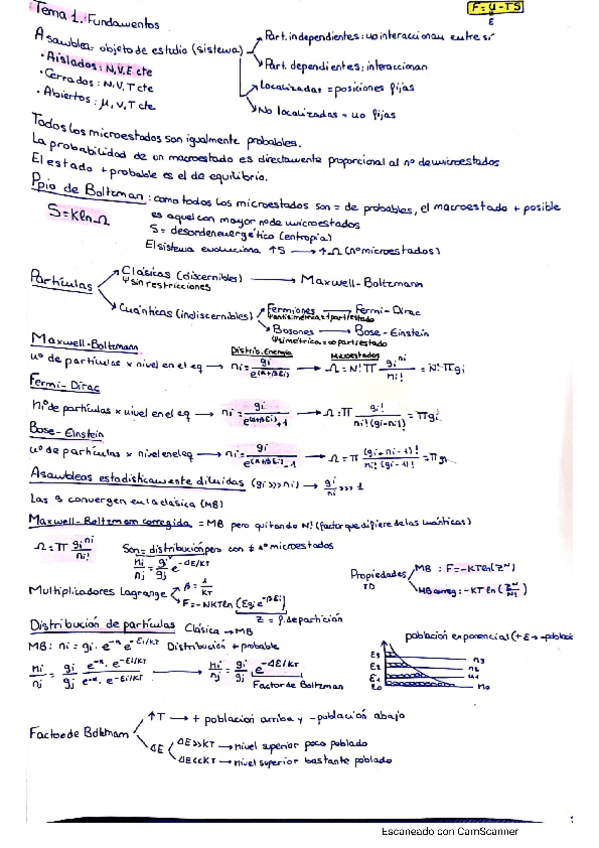 Tema 1. Fundamentos
F = U - TS
E
Asamblea: objeto de estudio (sistema)
Part. independientes: no interaccionan entre sí
Part. dependientes: interaccionan
Localizadas = posiciones fijas
No localizadas = no fijas
· Aislados: N, V, E cte
· Cerrados: N, V, T cte
· Abiertos: μ, V, T cte
Todos los microestados son igualmente probables.
La probabilidad de un macroestado es directamente proporcional al nº de microestados
El estado + probable es el de equilibrio.
Ppio de Boltzman: como todos los microestados son = de probables, el macroestado + posible
es aquel con mayor nº de microestados
S = k ln Ω
S = desorden energético (entropia)
El sistema evoluciona ↑S → ↑Ω (nº microestados)
Partículas
Clásicas (discernibles) → Maxwell-Boltzmann
Ψ sin restricciones
Cuánticas (indiscernibles)
Fermiones → Fermi-Dirac
Ψ antisimétrica = 1 part/estado
Bosones → Bose-Einstein
Ψ simétrica = ∞ part/estado
Maxwell-Boltzmann
Distrib. Energía
Macroestados
nº de partículas x nivel en el eq → ni = gi / e^(α+βεi) → Ω = N! π gi^ni / ni! = N! π gi
Fermi-Dirac
nº de partículas x nivel en el eq → ni = gi / e^(α+βεi) +1 → Ω = π gi! / ni!(gi-ni)! = π gi
Bose-Einstein
nº de partículas x nivel en el eq → ni = gi / e^(α+βεi) -1 → Ω = π (gi+ni-1)! / ni!(gi-1)! = π gi
Asambleas estadísticamente diluidas (gi >>> ni) → gi/ni >>> 1
Las 3 convergen en la clásica (MB)
Maxwell-Boltzmann corregida = MB pero quitando N! (factor que difiere de las cuánticas)
Ω = π gi^ni / ni!
Son = distribución pero con ≠ nº microestados
ni/nj = gi/gj e^-ΔE/KT
Multiplicadores Lagrange
β = 1/KT
F = -NKT ln (Σgi e^-βεi)
Z = f. de partición
Propiedades TD
MB: F = -KT ln (Z^N)
MB correg: -KT ln (Z^N/N!)
Distribución de partículas Clásica → MB
MB: ni = gi · e^-α · e^-εi/KT Distribución + probable
ni/nj = gi/gj e^-α · e^-εi/KT / e^-α · e^-εj/KT → ni/nj = gi/gj e^-ΔE/KT
Factor de Boltzman
población exponencial (+E → -població
E3 n3
E2 n2
E1 n1
E0 n0
Factor de Boltzmam
↑T → + poblacion arriba y - población abajo
ΔE
ΔE>>KT → nivel superior poco poblado
ΔE<<KT → nivel superior bastante poblado
Escaneado con CamScanner